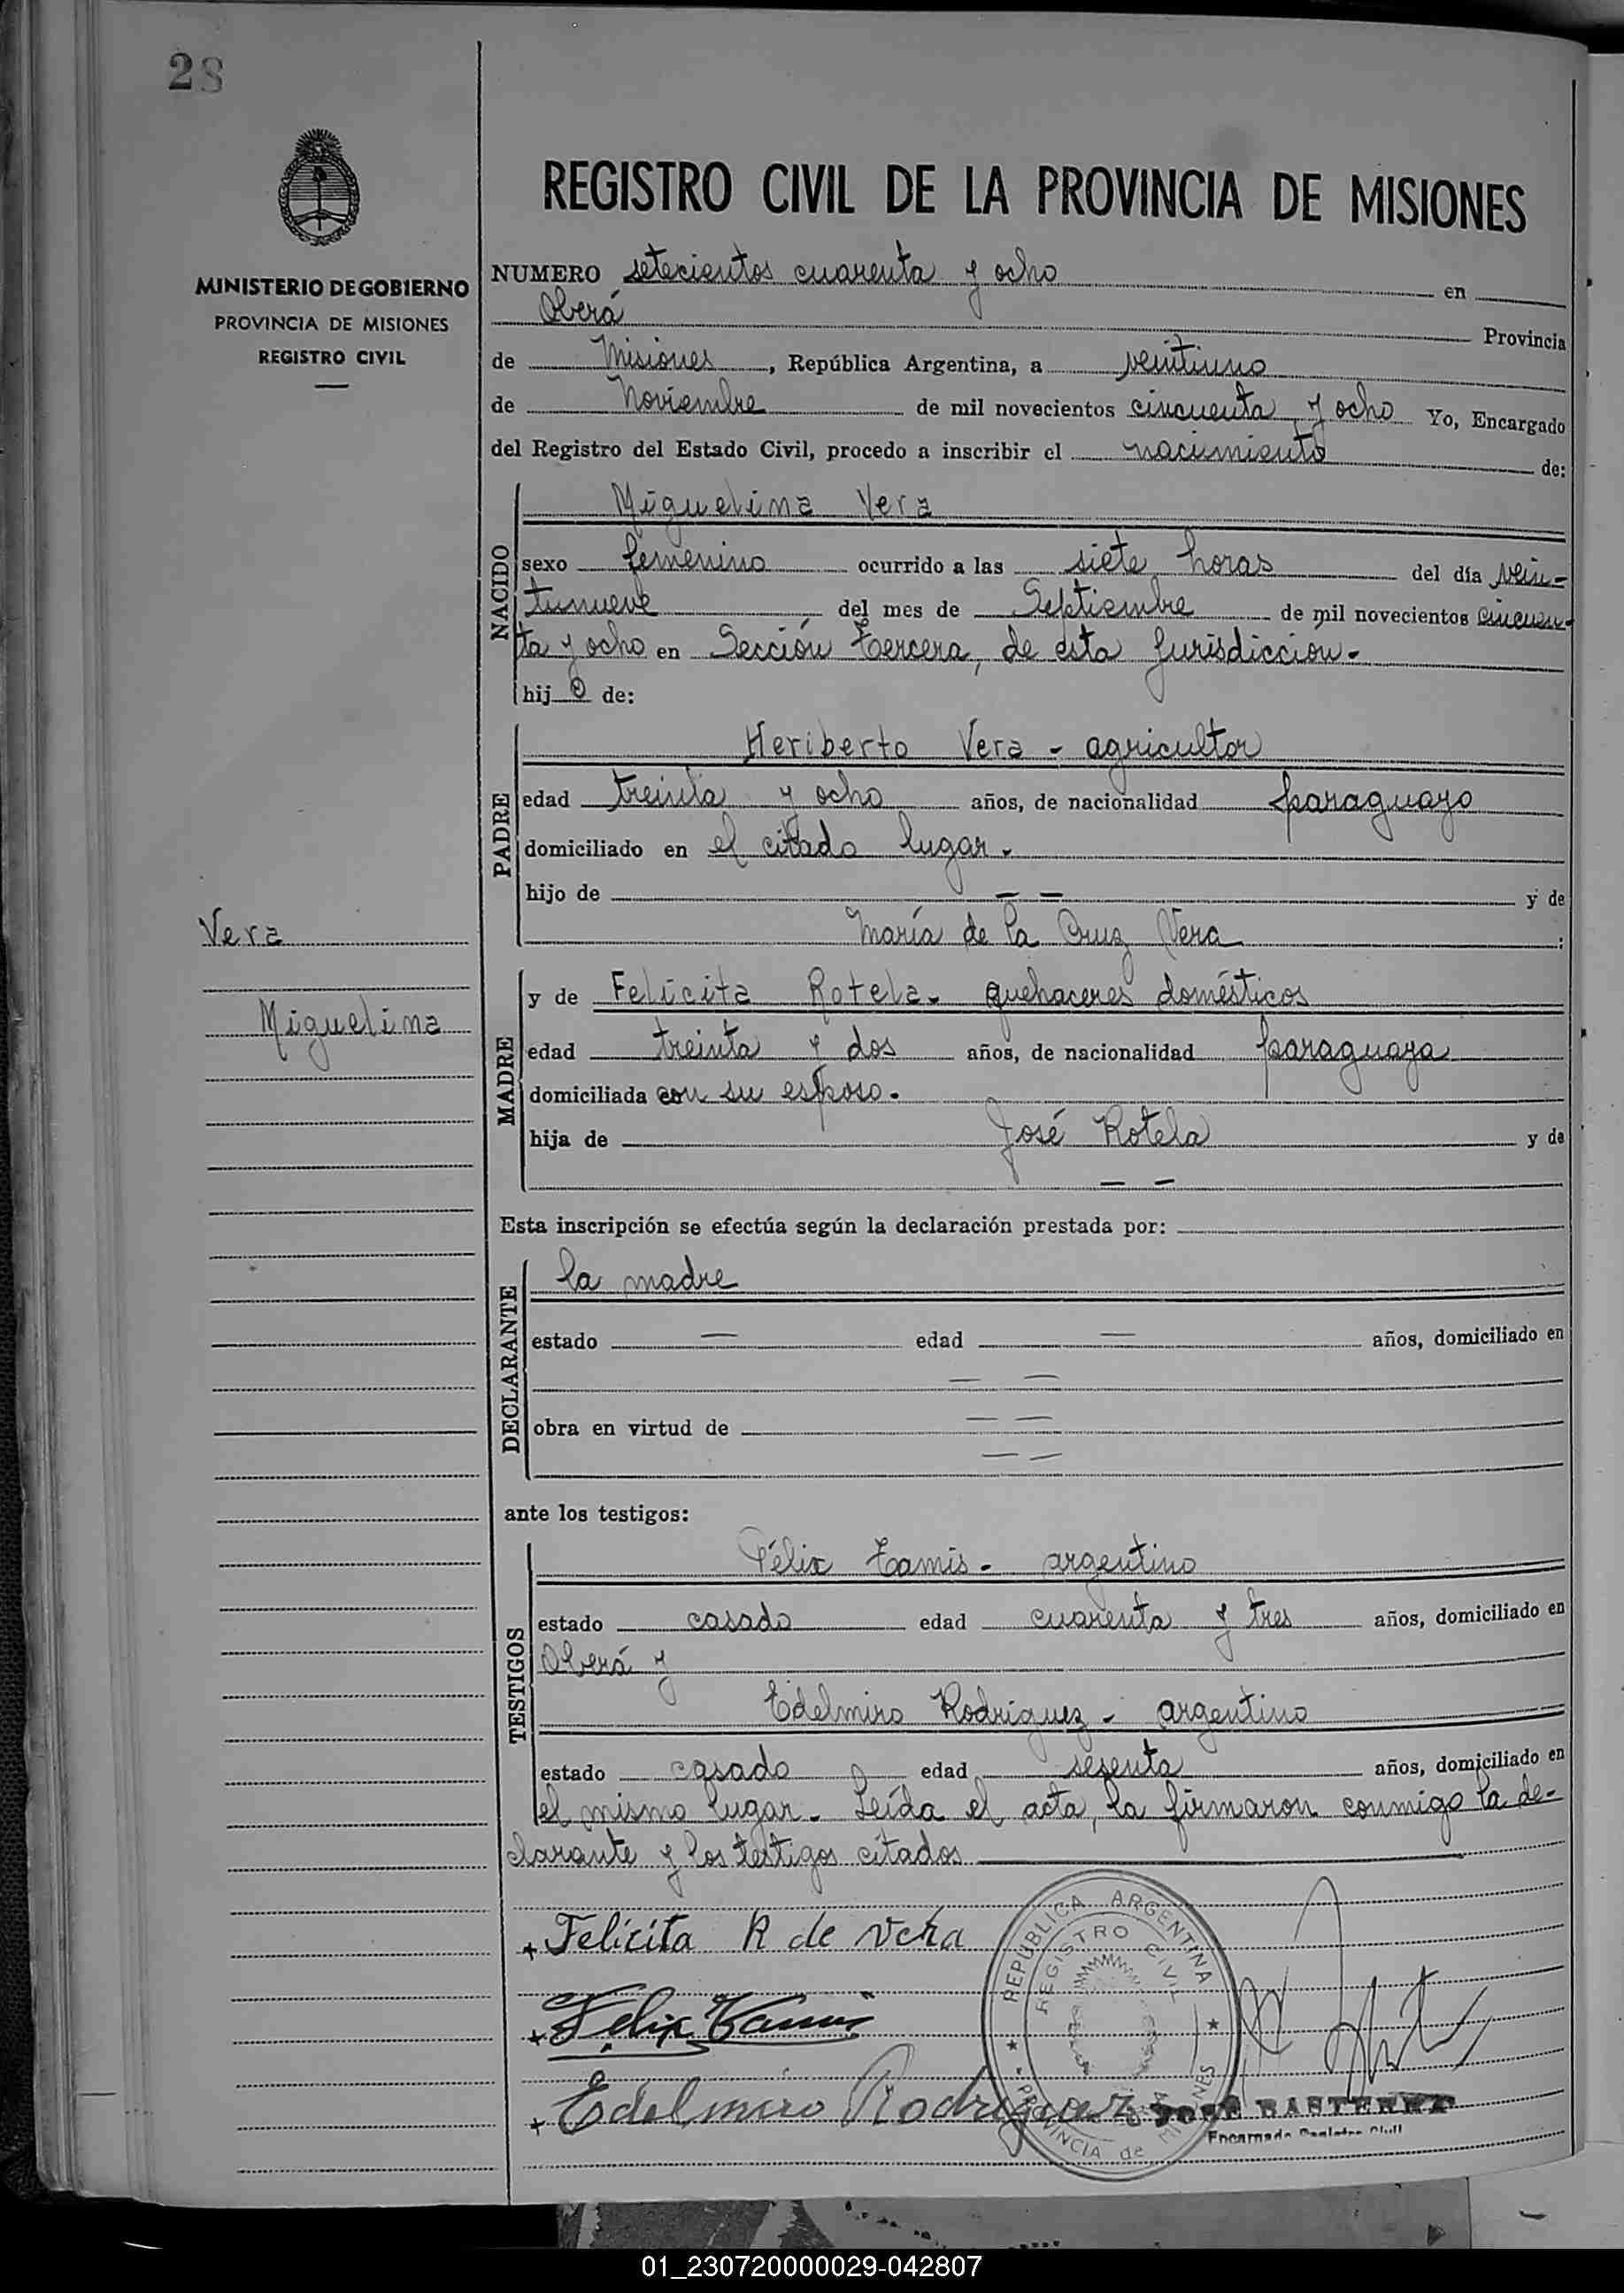 28
REGISTRO CIVIL DE LA PROVINCIA DE MISIONES
MINISTERIO DE GOBIERNO
PROVINCIA DE MISIONES
REGISTRO CIVIL
NUMERO setecientos cuarenta y ocho en
Oberá Provincia
de Misiones, República Argentina, a veintiuno
de Noviembre de mil novecientos cincuenta y ocho Yo, Encargado
del Registro del Estado Civil, procedo a inscribir el nacimiento de:
NACIDO
Miguelina Vera
sexo femenino ocurrido a las siete horas del día vein-
tinueve del mes de Septiembre de mil novecientos cincuen-
ta y ocho en Sección tercera, de esta Jurisdicción.-
hij a de:
PADRE
Heriberto Vera - agricultor
edad treinta y ocho años, de nacionalidad paraguayo
domiciliado en el citado lugar.
hijo de — — y de
María de la Cruz Vera :
Vera
Miguelina
MADRE
y de Felicita Rotela. quehaceres domésticos
edad treinta y dos años, de nacionalidad paraguaya
domiciliada con su esposo.
hija de José Rotela y de
— —
Esta inscripción se efectúa según la declaración prestada por:
DECLARANTE
la madre
estado — edad — años, domiciliado en
— —
obra en virtud de — —
— —
ante los testigos:
TESTIGOS
Félix Tamis - argentino
estado casado edad cuarenta y tres años, domiciliado en
Oberá y
Edelmiro Rodríguez - argentino
estado casado edad sesenta años, domiciliado en
el mismo lugar. Leída el acta, la firmaron conmigo la de-
clarante y los testigos citados
+ Felicita R de vera
+ Felix Tamis
+ Edelmiro Rodriguez
REPUBLICA ARGENTINA
REGISTRO CIVIL
PROVINCIA de MISIONES
JOSE
Encargado Registro Civil
01_230720000029-042807